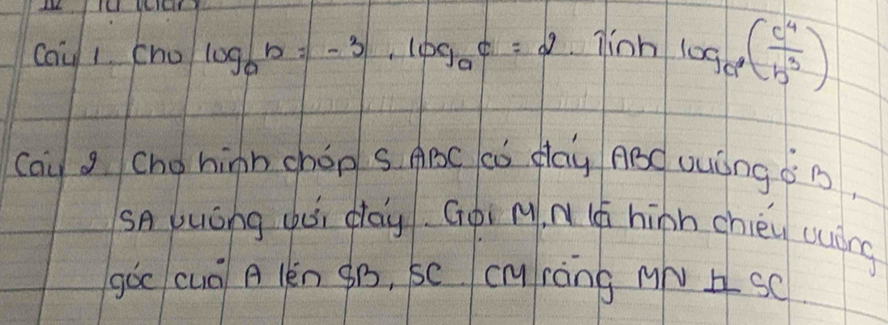 Câu 1. Cho log_a b = -3, log_a c = 2. Tính log_a (c⁴/b³)
Câu 2 Cho hình chóp S.ABC có đáy ABC vuông ở B,
SA vuông với đáy. Gọi M, N là hình chiếu vuông
góc của A lên SB, SC. CM rằng MN ⊥ SC